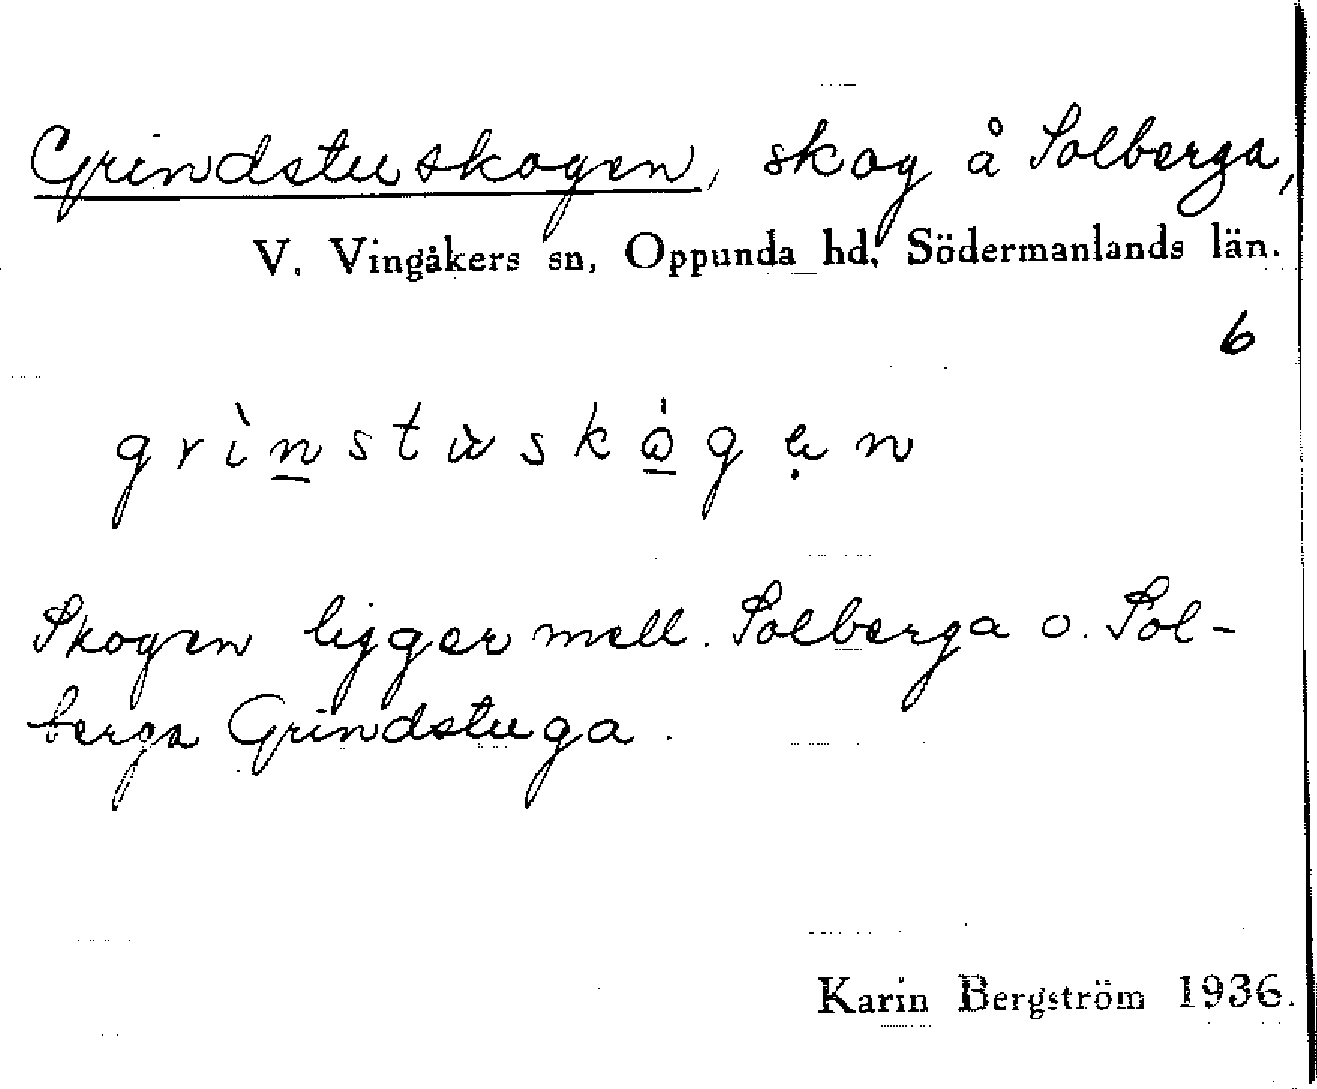 Grindstuskogen, skog å Solberga,
V. Vingåkers sn, Oppunda hd, Södermanlands län.
6
Skogen ligger mell. Solberga o. Sol-
berga Grindstuga.
Karin Bergström 1936.